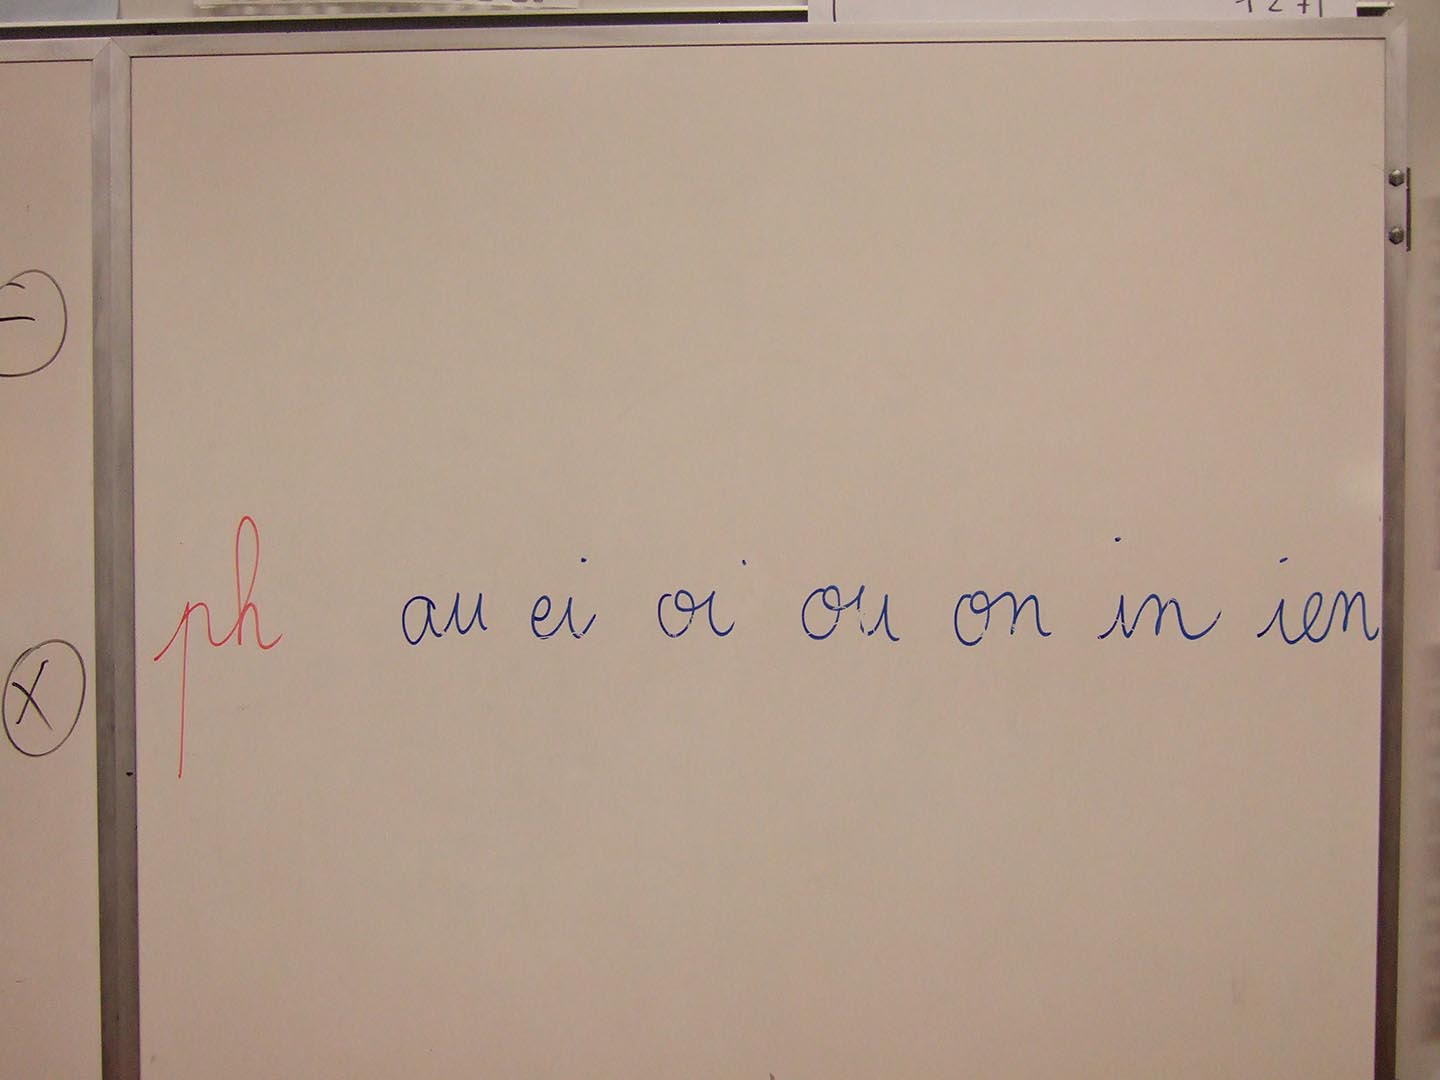 ph au ei oi ou on in ien
X